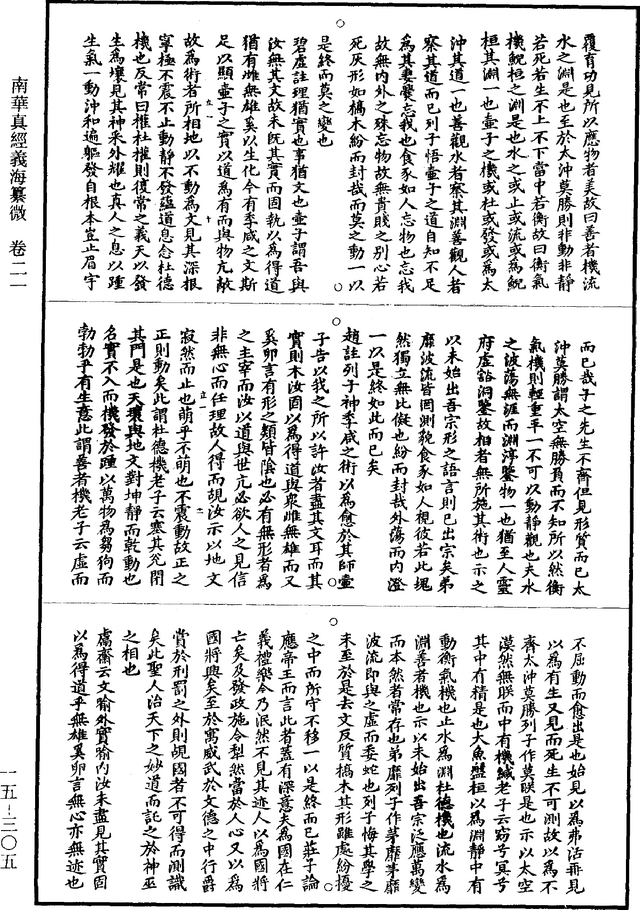 南華真經義海纂微 卷二一
一五－三〇五
覆有功見所以應物者美故曰善者機流
水之淵是也至於太沖莫勝則非動非靜
若死若生不上不下當中若衡故曰衡氣
機鯢桓之淵是也水之或止或流或為鯢
桓其淵一也壺子之機或杜或發或為太
沖其道一也善觀水者察其淵善觀人者
察其道而已列子悟壺子之道自知不足
為其妻爨忘我也食豕如人忘物也忘我
故無內外之殊忘物故無貴賤之別心若
死灰形如槁木紛而封哉而莫之動一以
是終而莫之變也
碧虛註理猶實也事猶文也壺子謂吾與
汝無其文故未既其實而固執以為得道
猶有雌無雄奚以生化今有季咸之文斯
足以顯壺子之實以道為有而與物亢敵
故為術者所相地以不動為文見其深根
寧極不震不止動靜不發蘊道息念杜德
機也反常曰權杜權則復常之義天以發
生為壤見其神采外耀也真人之息以踵
生氣一動沖和遍軀發自根本豈止眉宇
而已哉子之先生不齊但見形質而已太
沖莫勝謂太空無勝負而不知所以然衡
氣機則輕重平一不可以動靜觀也夫水
之波蕩無涯而淵渟鑒物一也猶至人靈
府虛谿洞鑒故相者無所施其術也示之
以未始出吾宗形之語言則已出宗矣弟
靡波流皆罔測貌食豕如人視彼若此塊
然獨立無比儗也紛而封哉外蕩而內澄
一以是終如此而已矣
趙註列子神季咸之術以為愈於其師壺
子告以我之所以許汝者盡其文耳而其
實則本汝固以為得道與眾雌無雄而又
奚卵言有形之類皆陰也必有無形者為
之主宰而汝以道與世亢必欲人之見信
非無心而任理故人得而覘汝示以地文
寂然而止也萌乎不萌也不震動故正之
正則動矣此謂杜德機老子云塞其兌閉
其門是也天壤與地文對坤靜而乾動也
名實不入而機發於踵以萬物為芻狗而
勃勃乎有生意此謂善者機老子云虛而
不屈動而愈出是也始見以為弗活再見
以為有生又見而死生不可測故以為不
齊太沖莫勝列子作莫眹是也示以太空
漠然無眹而中有機緘老子云窈兮冥兮
其中有精是也大魚盤桓以為淵靜中有
動衡氣機也止水為淵杜德機也流水為
淵善者機也示以未始出吾宗泛應萬變
而本然者常存也弟靡列子作茅靡茅靡
波流即與之虛而委蛇也列子悔其學之
未至於是去文反質槁木其形雖處紛擾
之中而所守不移一以是終而已莊子論
應帝王而言此者蓋有深意夫為國在仁
義禮樂今乃泯然不見其迹人以為國將
亡矣及發政施令犁然當於人心又以為
國將興矣至於寓威武於文德之中行爵
賞於刑罰之外則覘國者不可得而測識
矣此聖人治天下之妙道而託之於神巫
之相也
鬳齋云文喻外實喻內汝未盡見其實固
以為得道乎無雄奚卵言無心亦無迹也